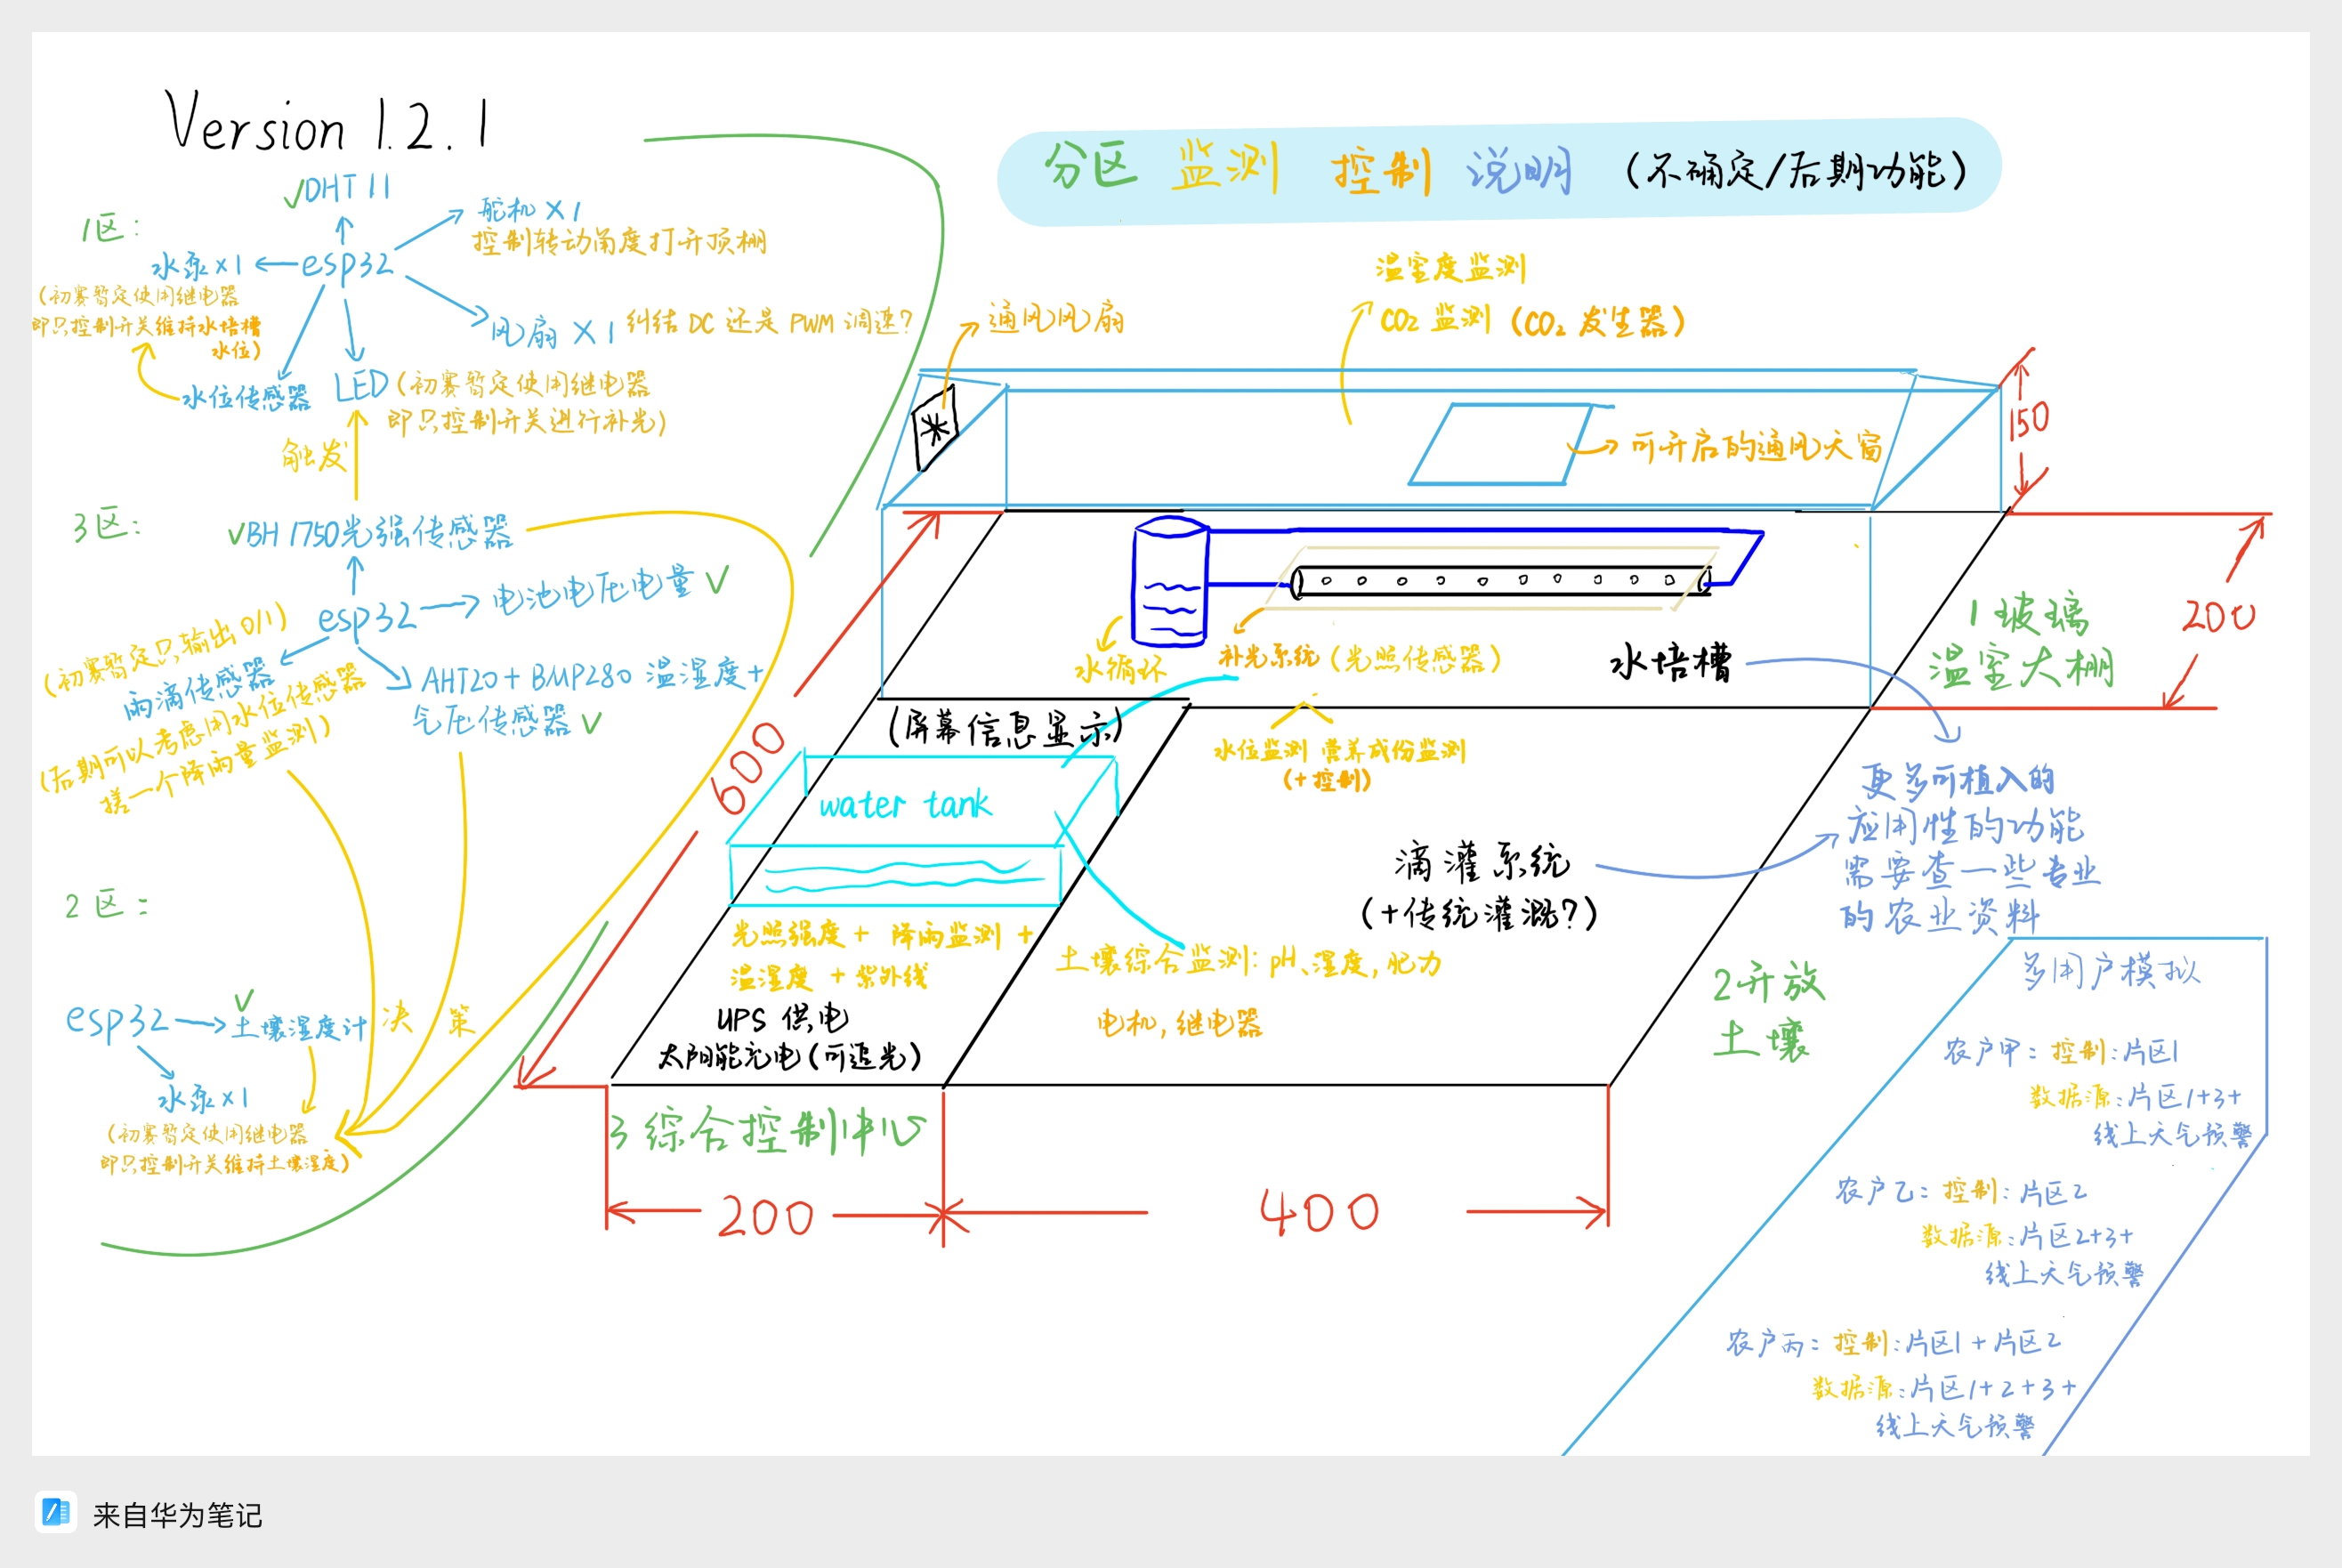 Version 1.2.1
分区 监测 控制 说明 (不确定/后期功能)
1区:
√DHT11
水泵×1
esp32
舵机×1
控制转动角度打开顶棚
(初赛暂定使用继电器
即只控制开关维持水培槽
水位)
风扇×1 纠结DC还是PWM调速?
水位传感器
LED
(初赛暂定使用继电器
即只控制开关进行补光)
触发
3区:
√BH1750光强传感器
esp32
电池电压电量√
(初赛暂定只输出0/1)
雨滴传感器
(后期可以考虑用水位传感器
搓一个降雨量监测)
AHT20+BMP280 温湿度+
气压传感器√
2区:
esp32
√
土壤湿度计
决 策
水泵×1
(初赛暂定使用继电器
即只控制开关维持土壤湿度)
通风风扇
温室度监测
CO₂监测(CO₂发生器)
可开启的通风天窗
150
200
600
1玻璃
温室大棚
水循环
补光系统(光照传感器)
水培槽
(屏幕信息显示)
水位监测 营养成份监测
(+控制)
water tank
更多可植入的
应用性的功能
需要查一些专业
的农业资料
滴灌系统
(+传统灌溉?)
光照强度+降雨监测+
温湿度+紫外线
UPS供电
太阳能充电(可追光)
土壤综合监测:pH、湿度,肥力
电机,继电器
2开放
土壤
3综合控制中心
200
400
多用户模拟
农户甲:控制:片区1
数据源:片区1+3+
线上天气预警
农户乙:控制:片区2
数据源:片区2+3+
线上天气预警
农户丙:控制:片区1+片区2
数据源:片区1+2+3+
线上天气预警
来自华为笔记